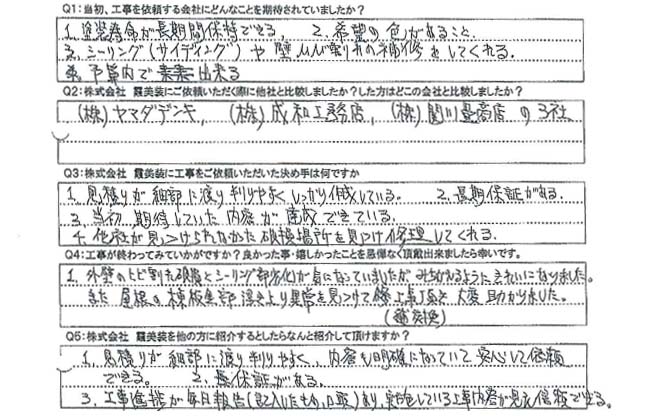 Q1:当初、工事を依頼する会社にどんなことを期待されていましたか?
1. 塗装寿命が長期間保持できる, 2. 希望の色があること.
3. シーリング(サイディング)や壁ひび割れの補修をしてくれる.
4. 予算内で 出来る
Q2:株式会社 霞美装にご依頼いただく際に他社と比較しましたか?した方はどこの会社と比較しましたか?
(株)ヤマダデンキ, (株)成和工務店, (株)関川畳商店 の3社
Q3:株式会社 霞美装に工事をご依頼いただいた決め手は何ですか
1. 見積りが細部に渡り判りやすくしっかり作成している。 2. 長期保証がある.
3. 当初、期待していた内容が達成できている.
4. 他社が見つけられなかった破損場所を見つけ修理してくれる.
Q4:工事が終わってみていかがですか?良かった事・嬉しかったことを忌憚なく頂戴出来ましたら幸いです。
1. 外壁のひび割れ破損とシーリング部劣化が気になっていましたが みちがえるようにきれいになりました。
また 屋根の棟板金部 より異常を見つけて 工事 大変 助かりました。
Q5:株式会社 霞美装を他の方に紹介するとしたらなんと紹介して頂けますか?
1. 見積りが細部に渡り判りやすく、内容も明確になっていて安心して依頼
できる。 2. 長 保証がある.
3. 工事進捗が毎日報告( )あり, している工事内容が見え信頼できる.